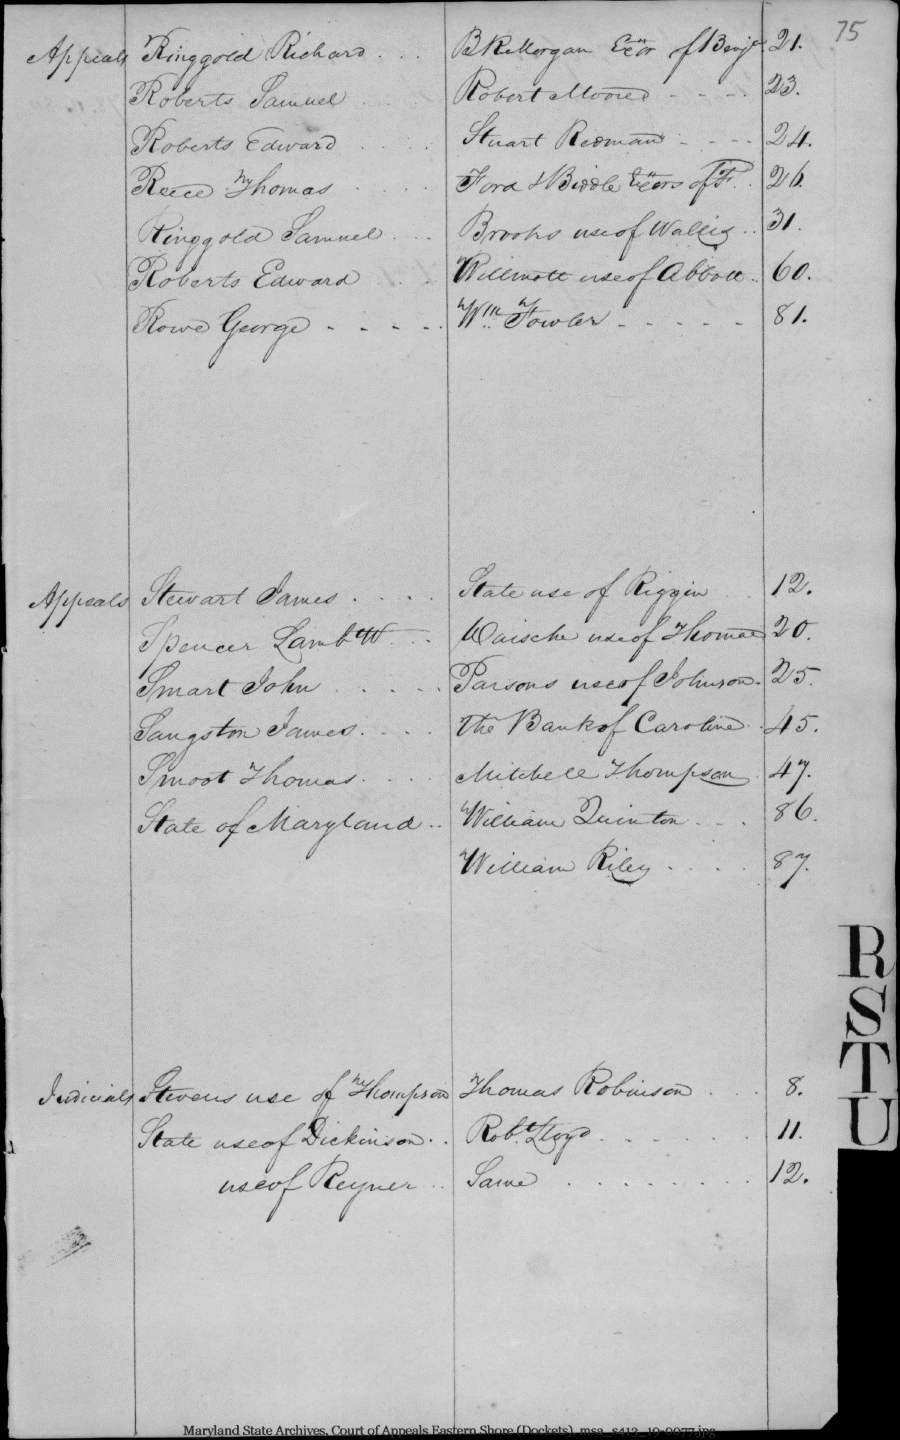 75
Appeals Ringgold Richard . . . B R Morgan Exōr of Benja 21.
Roberts Samuel . . . Robert Moore - - - - 23.
Roberts Edward . . . . Stuart Redman - - - - 24.
Reece Thomas . . . . Ford & Biddle Exōrs of F. . 26.
Ringgold Samuel . . . Brooks use of Wallis . . 31.
Roberts Edward . . . Willmott use of Abbott . . 60.
Rowe George - - - - . Wm. Fowler - - - - - 81.
Appeals Stewart James . . . . State use of Riggin . . 12.
Spencer Lambt W - . . use of Thomas 20.
Smart John . . . . . Parsons use of Johnson . 25.
Sangston James . . . . The Bank of Caroline . . 45.
Smoot Thomas . . . . Mitchell Thompson 47.
State of Maryland . . William Quinton . . . 86.
William Riley . . . . 87.
Judicials Stevens use of Thompson Thomas Robinson . . . 8.
State use of Dickinson . . Robt. Lloyd . . . . . . 11.
use of Reyner . . Same . . . . . . . . 12.
R
S
T
U
Maryland State Archives, Court of Appeals Eastern Shore (Dockets), msa_s412_10-0077.jpg